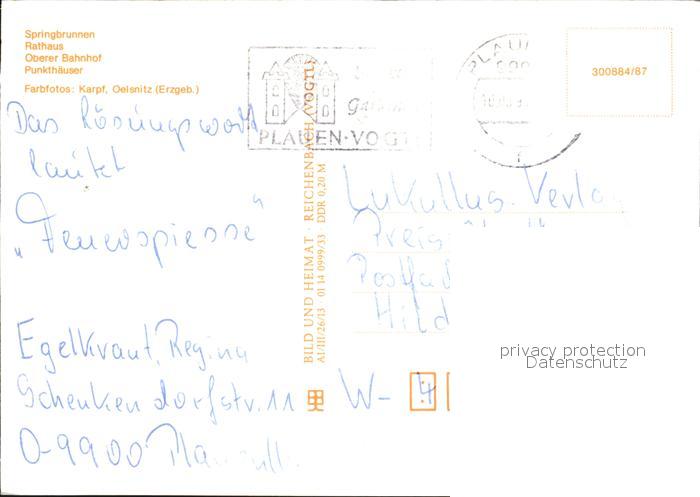 Springbrunnen
Rathaus
Oberer Bahnhof
Punkthäuser
Farbfotos: Karpf, Oelsnitz (Erzgeb.)
Das Lösungswort
lautet
„Feuerspiesse"
Egelkraut, Regina
Schenkendorfstr. 11
O-9900
BILD UND HEIMAT · REICHENBACH (VOGTL)
A1/III/26/13 01 14 0999/33 DDR 0,20 M
PLAUEN·VOGTL
PLAU
300884/87
Lukullus-Verlag
Preis
Postfa
Hild
W- 4
privacy protection
Datenschutz